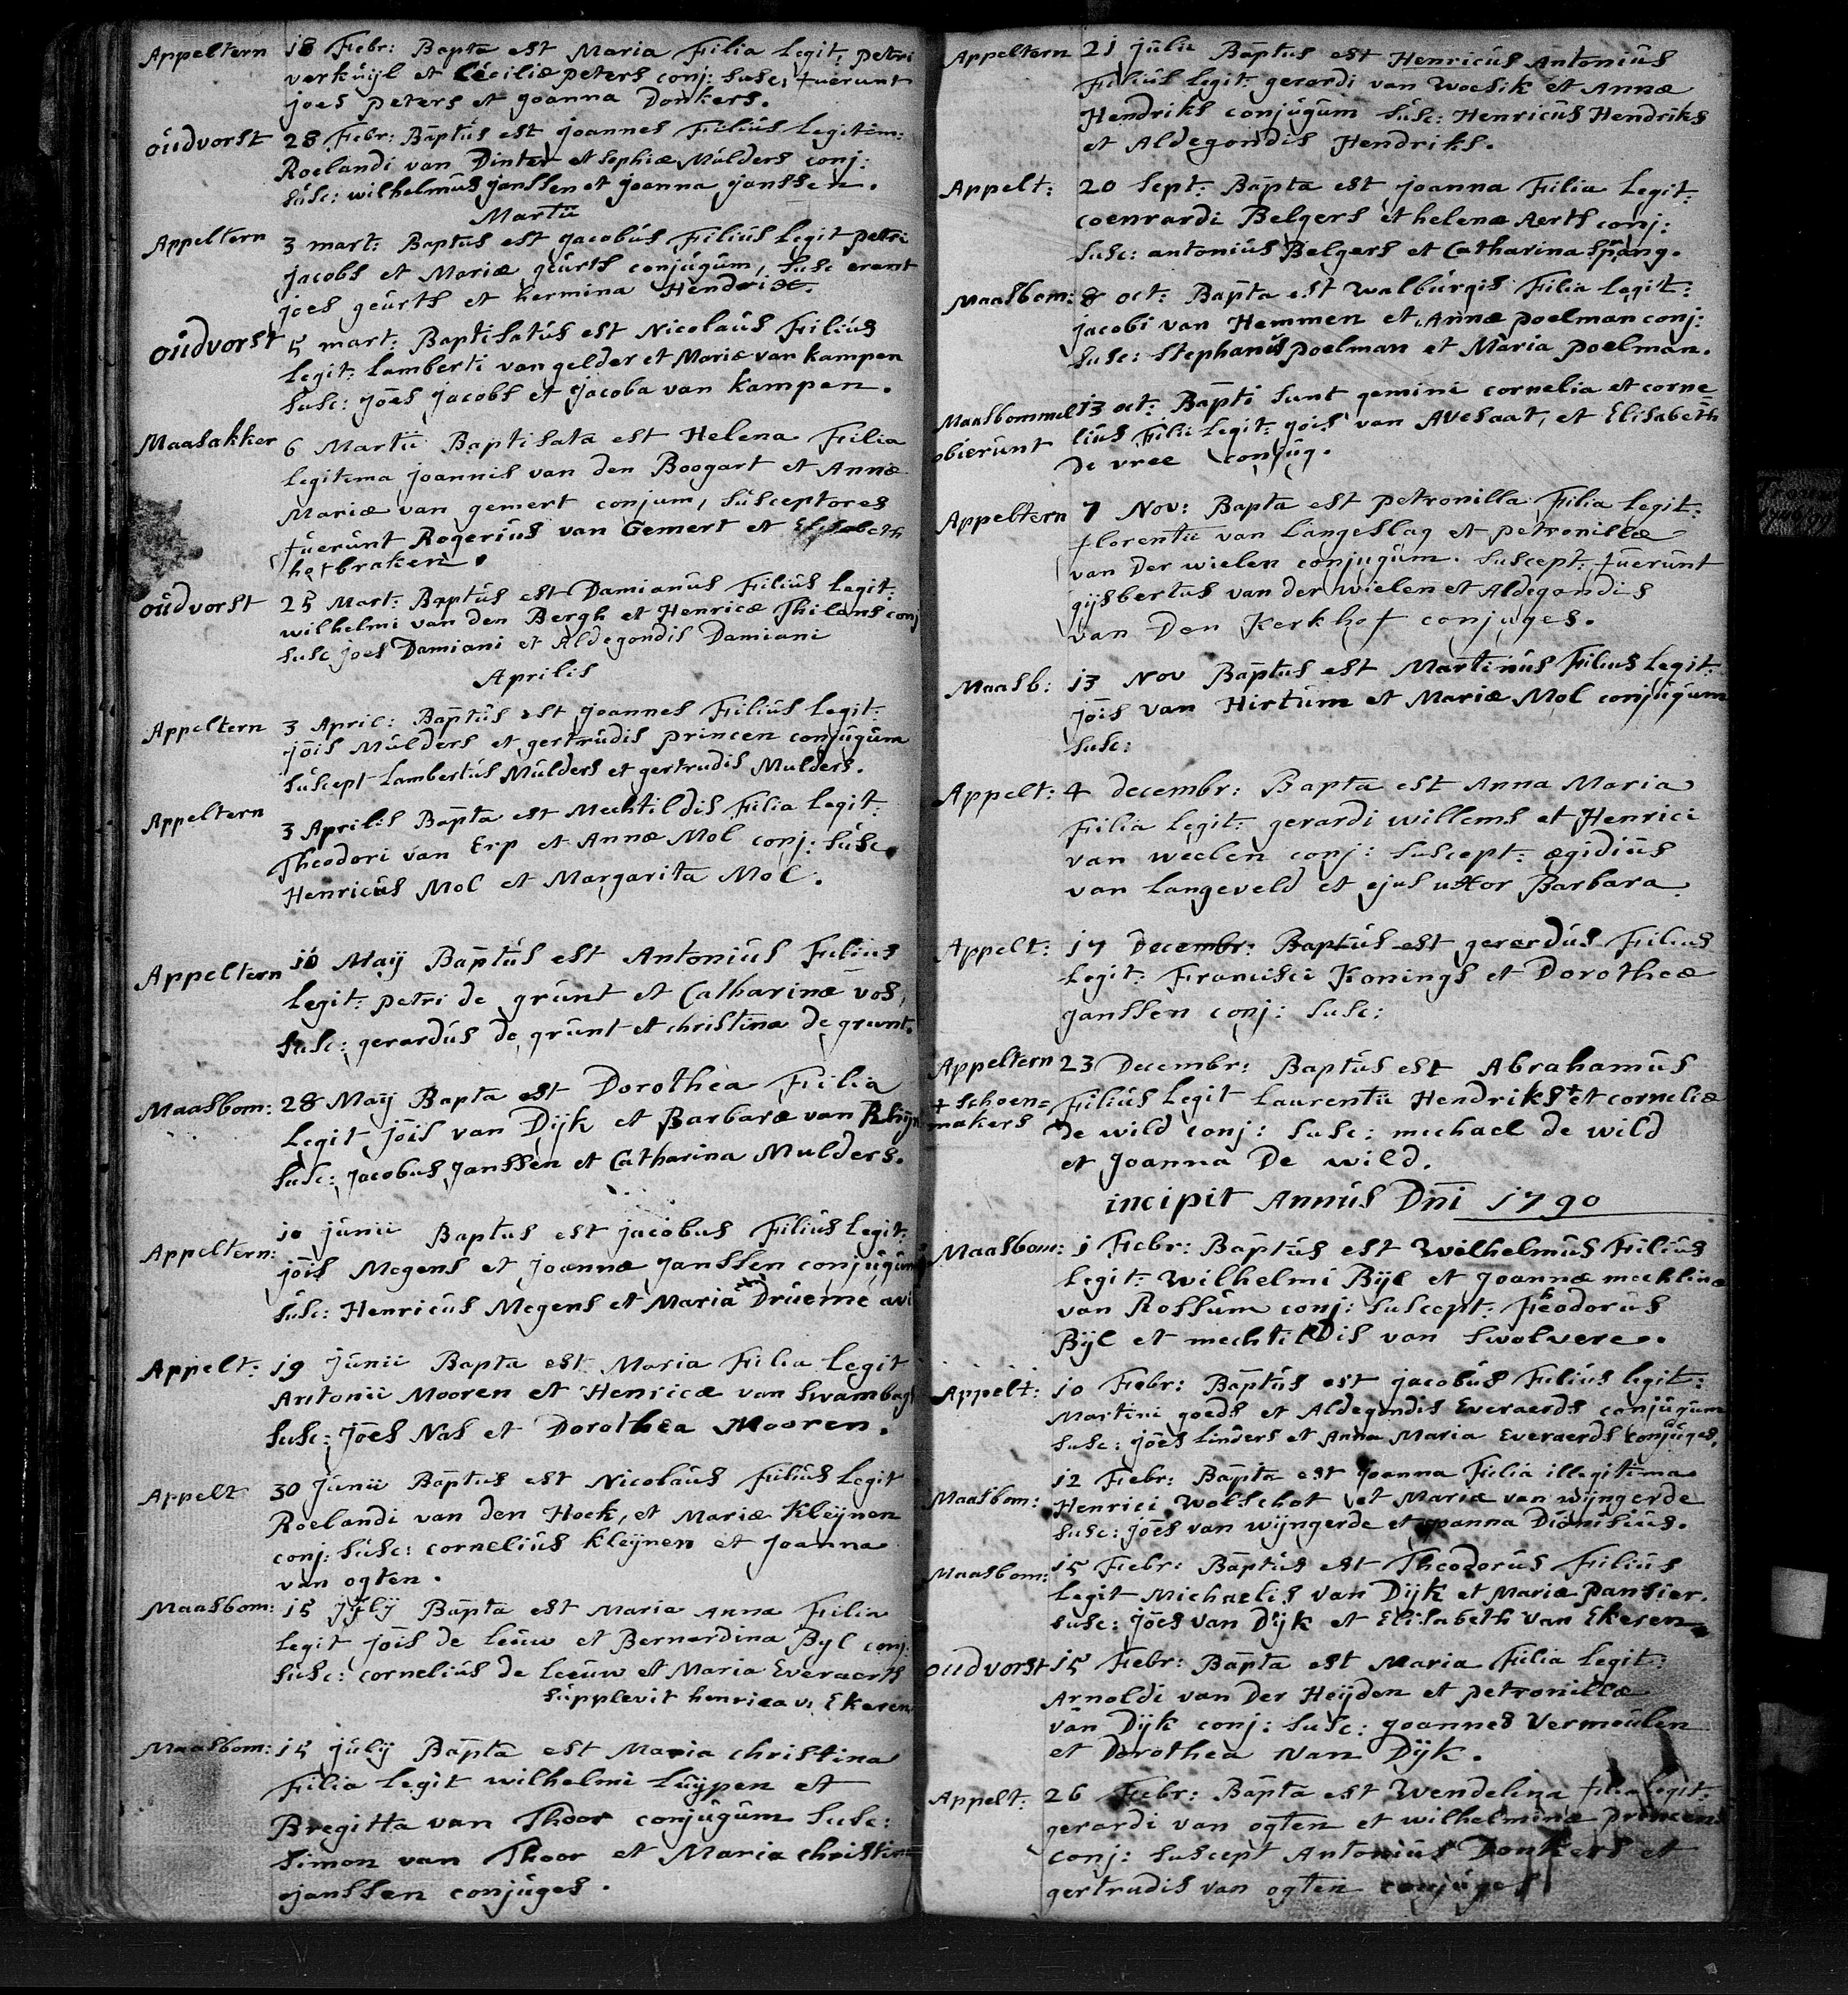 Appeltern 18 Febr: Bapta est Maria Filia Legit: petri
verkuijl et Ceciliæ peters conj: susc: fuerunt
joes peters et joanna Donkers.
oudvorst 28 Febr: Baptus est joannes Filius Legitim:
Roelandi van Dinter et sophiæ Mulders conj:
susc: wilhelmus janssen et joanna janssen.
Martii
Appeltern 3 mart: Baptus est jacobus Filius Legit petri
jacobs et Mariæ geurts conjugum, susc erant
joes geurts et hermina Hendrix.
oudvorst 5 mart: Baptisatus est Nicolaus Filius
Legit: Lamberti van gelder et Mariæ van kampen
susc: joes jacobs et jacoba van kampen.
Maasakker 6 Martii Baptisata est Helena Filia
Legitima joannis van den Boogart et Annæ
Mariæ van gemert conjum, susceptores
fuerunt Rogerius van Gemert et Elisabeth
hofbraken.
oudvorst 25 Mart: Baptus est Damianus Filius Legit:
wilhelmi van den Bergh et Henricæ Thilans conj
susc joes Damiani et Aldegondis Damiani
Aprilis
Appeltern 3 April: Baptus est joannes Filius Legit:
jois Mulders et gertrudis princen conjugum
suscept Lambertus Mulders et gertrudis Mulders.
Appeltern 3 Aprilis Bapta est Mechtildis Filia Legit:
Theodori van Erp et Annæ Mol conj: susc
Henricus Mol et Margarita Mol.
Appeltern 10 Maij Baptus est Antonius Filius
Legit: petri de grunt et Catharinæ vos,
susc: gerardus de grunt et christina de grunt.
Maasbom: 28 Maij Bapta est Dorothea Filia
Legit jois van Dijk et Barbaræ van Rhijn
susc: jacobus janssen et Catharina Mulders.
Appeltern: 10 junii Baptus est jacobus Filius Legit:
jois Megens et joannæ janssen conjugum
susc: Henricus Megens et Maria Drueme avi
Appelt: 19 junii Bapta est Maria Filia Legit
Antonii Mooren et Henricæ van swambag
susc: joes Nas et Dorothea Mooren.
Appelt 30 junii Baptus est Nicolaus Filius Legit
Roelandi van den Hoek, et Mariæ Kleijnen
conj: susc: cornelius kleijnen et joanna
van ogten.
Maasbom: 15 july Bapta est Maria Anna Filia
Legit jois de Leuw et Bernardina Byl conj:
susc: cornelius de Leeuw et Maria Everaerts
supplevit henrica v. Ekeren
Maasbom: 15 julij Bapta est Maria christina
Filia Legit wilhelmi Luijpen et
Bregitta van Thoor conjugum susc:
simon van Thoor et Maria christina
janssen conjuges.
Appeltern 21 julii Baptus est Henricus Antonius
Filius Legit: gerardi van Woesik et Annæ
Hendriks conjugum susc: Henricus Hendriks
et Aldegondis Hendriks.
Appelt: 20 sept: Bapta est joanna Filia Legit:
coenrardi Belgers et helenæ Aerts conj:
susc: antonius Belgers et Catharina Spang.
Maasbom: 8 oct: Bapta est walburgis Filia Legit:
jacobi van Hemmen et Annæ poelman conj:
susc: Stephanus poelman et Maria poelman.
Maasbommel 13 oct: Bapti sunt gemini cornelia et corne=
obierunt lius Filii Legit: jois van Avesaat, et Elisabeth
de vree conjug.
Appeltern 7 Nov: Bapta est petronilla Filia Legit:
florentii van Langeslag et petronillæ
van der wielen conjugum. suscept: fuerunt
gijsbertus van der wielen et Aldegondis
van Den Kerkhof conjuges.
Maasb: 13 Nov Baptus est Martinus Filius Legit:
jois van Hirtum et Mariæ Mol conjugum
susc:
Appelt: 4 decembr: Bapta est Anna Maria
Filia Legit: gerardi willems et Henrici
van weelen conj: suscept: ægidius
van Langeveld et ejus uxor Barbara.
Appelt: 17 Decembr: Baptus est gerardus Filius
Legit: Francisci Konings et Dorotheæ
janssen conj: susc:
Appeltern 23 Decembr: Baptus est Abrahamus
+ schoen= Filius Legit Laurentii Hendriks + et corneliæ
makers de wild conj: susc: michael de wild
et joanna De wild.
incipit Annus Dni 1790
Maasbom: 1 Febr: Baptus est Wilhelmus Filius
Legit: Wilhelmi Bijl et joannæ meeklinæ
van Rossum conj: suscept: Theodorus
Bijl et mechtildis van swolvere.
Appelt: 10 Febr: Baptus est jacobus Filius legit:
Martini goeds et Aldegondis Everaerds conjugum
susc: joes Linders et Anna Maria Everaerds conjuges.
Maasbom: 12 Febr: Bapta est joanna Filia illegitima
Henrici Wolschot et Mariæ van wijngerde
susc: joes van wijngerde et joanna Dionisius.
Maasbom: 15 Febr: Baptus est Theodorus Filius
Legit Michaelis van Dijk et Mariæ pansier.
susc: joes van Dijk et Elisabeth van Ekeren
oudvorst 15 Febr: Bapta est Maria Filia Legit:
Arnoldi van der Heijden et petronillæ
van Dijk conj: susc: joannes Vermeulen
et Dorothea van Dijk.
Appelt: 26 Febr: Bapta est Wendelina filia legit:
gerardi van ogten et wilhelminæ princen
conj: suscept Antonius Donkers et
gertrudis van ogten conjuges